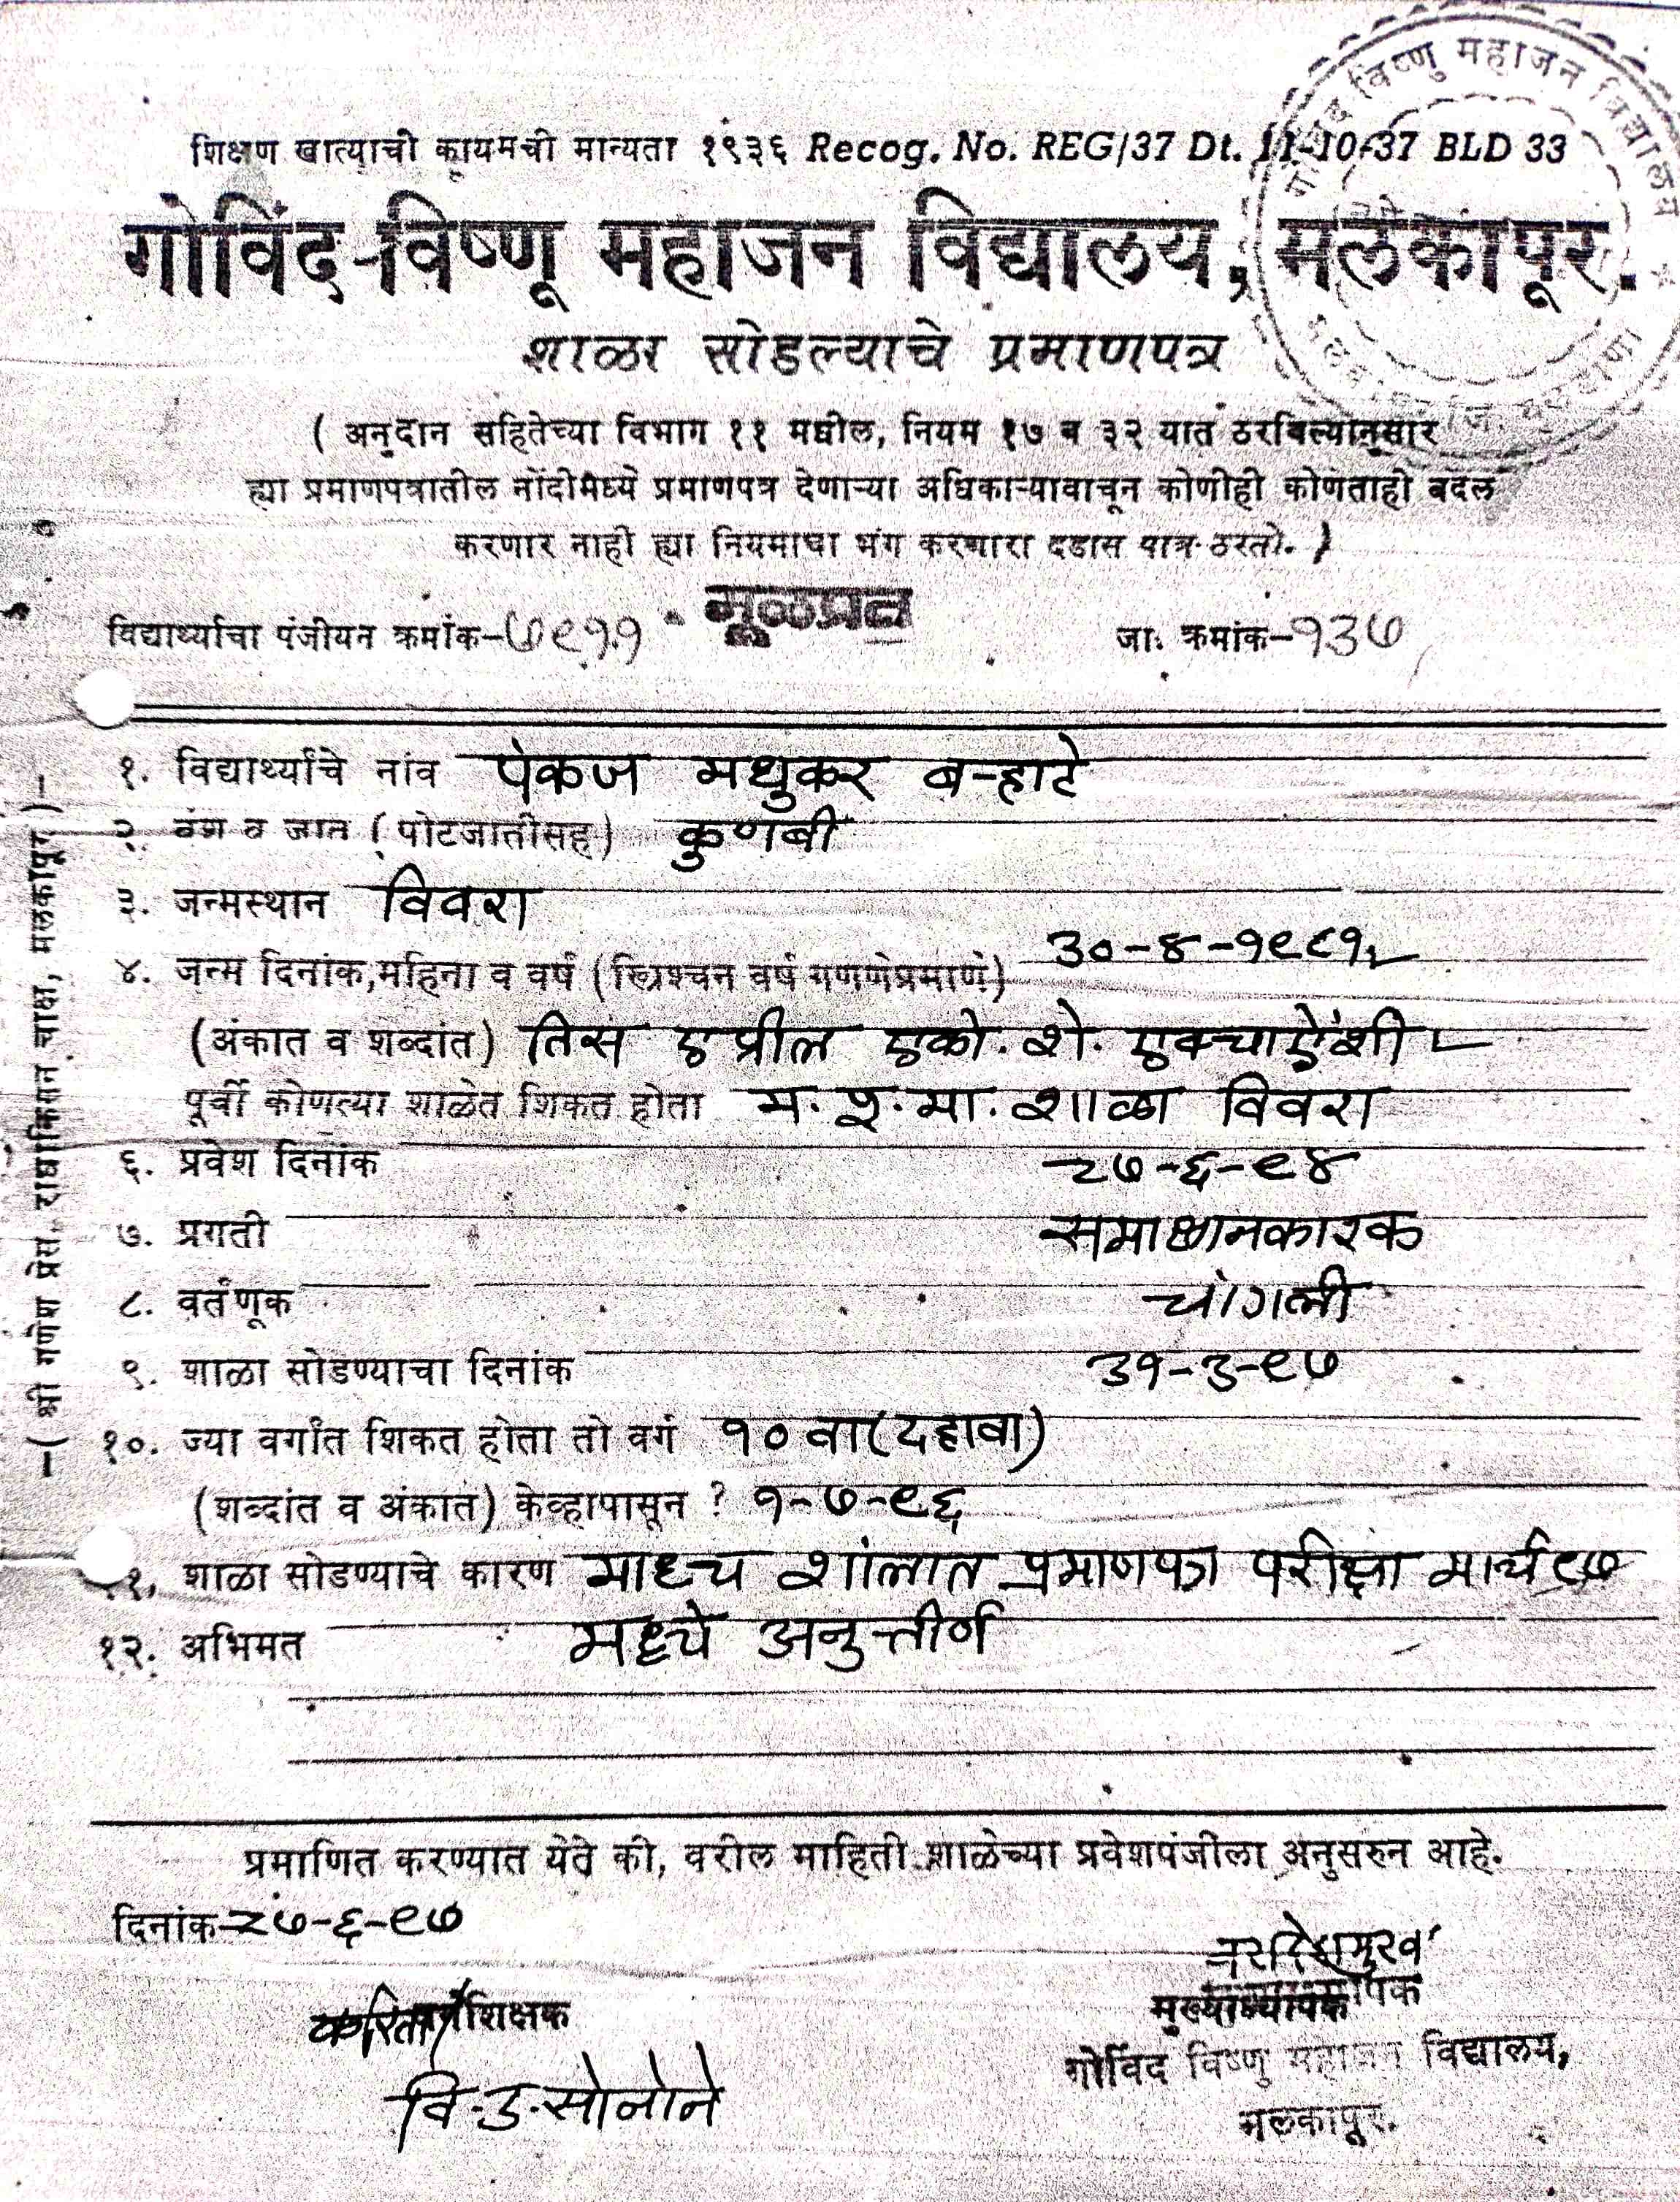 गोविंद विष्णु महाजन विद्यालय
शिक्षण खात्याची कायमची मान्यता १९३६ Recog. No. REG/37 Dt. 11-10-37 BLD 33
गोविंद-विष्णू महाजन विद्यालय, मलकापूर.
शाळा सोडल्याचे प्रमाणपत्र
( अनुदान सहितेच्या विभाग ११ मधील, नियम १७ व ३२ यात ठरविल्यानुसार
ह्या प्रमाणपत्रातील नोंदीमध्ये प्रमाणपत्र देणाऱ्या अधिकाऱ्यावाचून कोणीही कोणताही बदल
करणार नाही ह्या नियमाचा भंग करणारा दडास पात्र ठरतो. )
मूळप्रत
विद्यार्थ्याचा पंजीयन क्रमांक-७९११ जा. क्रमांक-१३७
१. विद्यार्थ्यांचे नांव पंकज मधुकर बऱ्हाटे
२. वंश व जात ( पोटजातीसह) कुणबी
३. जन्मस्थान विवरा
४. जन्म दिनांक,महिना व वर्ष (ख्रिश्चन वर्ष गणणेप्रमाणे) ३०-४-१९८१
(अंकात व शब्दांत) तिस एप्रील एको. शे. एक्याऐंशी
पूर्वी कोणत्या शाळेत शिकत होता म. पू. मा. शाळा विवरा
६. प्रवेश दिनांक २७-६-९४
७. प्रगती समाधानकारक
८. वर्तणूक चांगली
९. शाळा सोडण्याचा दिनांक ३१-३-९७
१०. ज्या वर्गांत शिकत होता तो वर्ग १० वा (दहावा)
(शब्दांत व अंकात) केव्हापासून ? १-७-९६
११. शाळा सोडण्याचे कारण माध्य शालांत प्रमाणपत्र परीक्षा मार्च ९७
१२. अभिमत मध्ये अनुत्तीर्ण
प्रमाणित करण्यात येते की, वरील माहिती शाळेच्या प्रवेशपंजीला अनुसरुन आहे.
दिनांक-२७-६-९७
करिता वर्गशिक्षक
वि. उ. सोनोने
मुख्याध्यापक
गोविंद विष्णु महाजन विद्यालय,
मलकापूर.
-( श्री गणेश प्रेस, राधाकिसन चाळ, मलकापूर )-